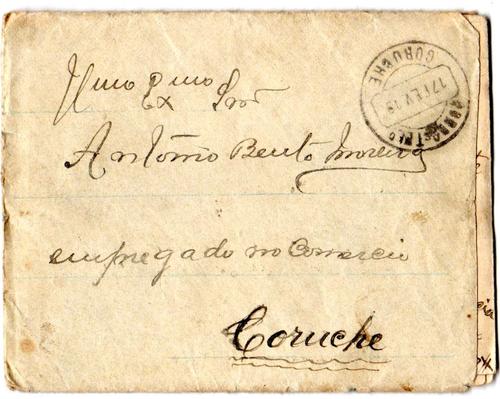 Illmo Exmo Snr
António Bento Moreira
empregado no Comercio
Coruche
CORUCHE
17 FEV 13